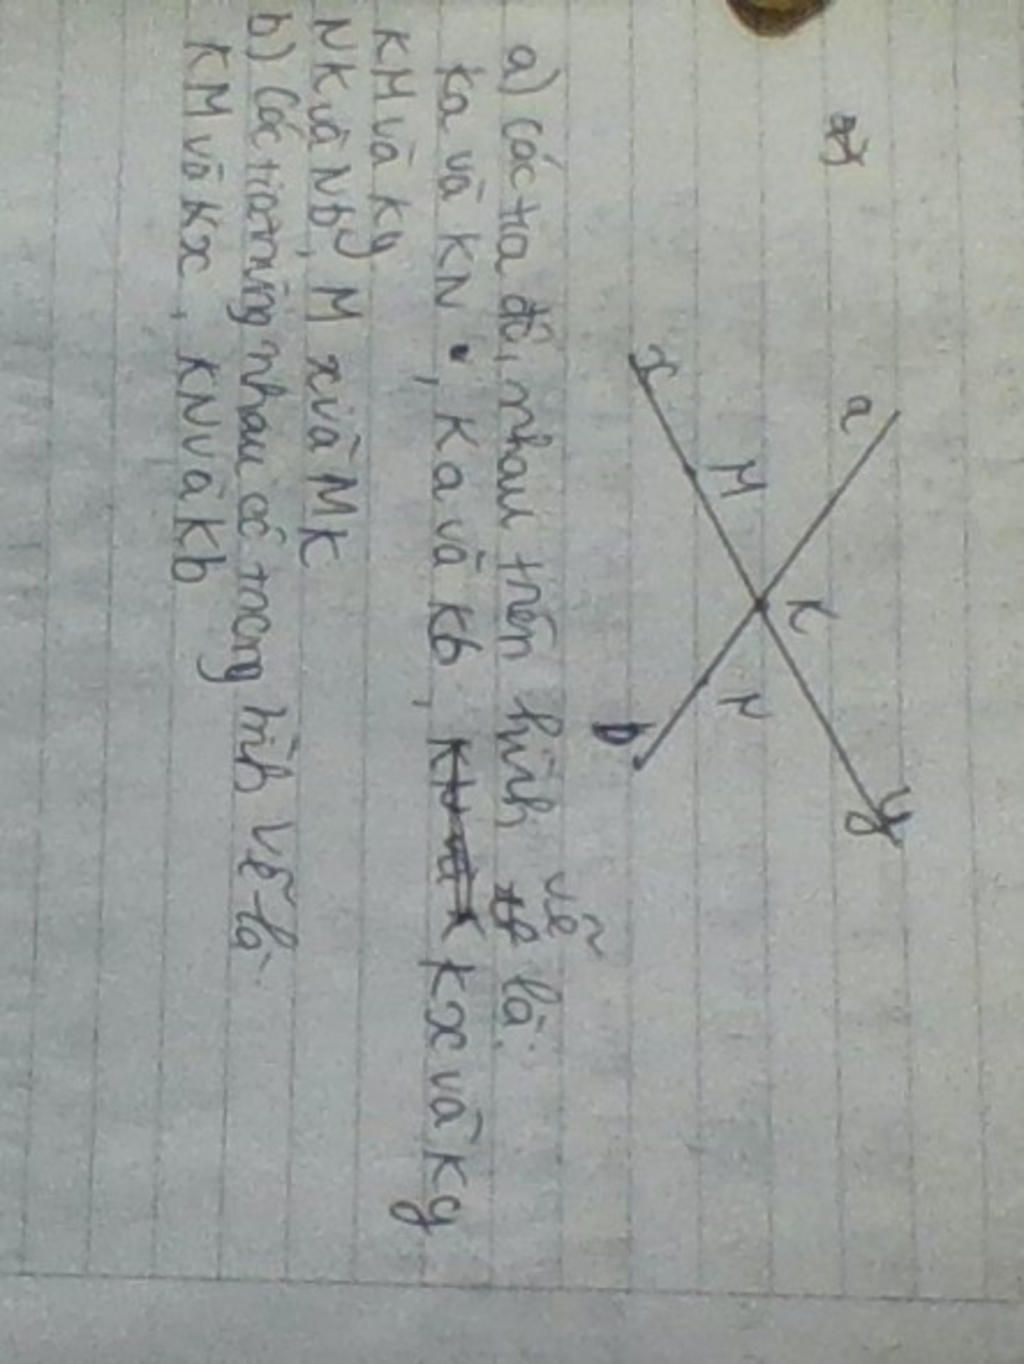 a
K
y
x
M
N
b
a) Các tia đối nhau trên hình vẽ là:
Ka và KN, Ka và Kb, Kx và Ky
KM và Ky
NK và Nb, Mx và MK
b) Các tia trùng nhau có trong hình vẽ là:
KM và Kx, KN và Kb